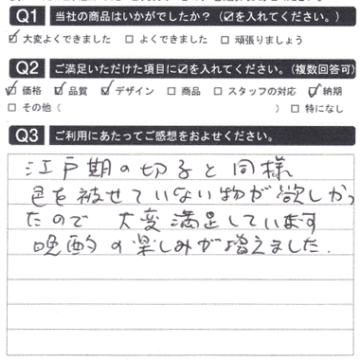 Q1 当社の商品はいかがでしたか？（☑を入れてください。）
☑ 大変よくできました □ よくできました □ 頑張りましょう
Q2 ご満足いただけた項目に☑を入れてください。（複数回答可）
☑ 価格 ☑ 品質 ☑ デザイン □ 商品 □ スタッフの対応 ☑ 納期
□ その他（ ） □ 特になし
Q3 ご利用にあたってご感想をおよせください。
江戸期の切子と同様
色を被せていない物が欲しかっ
たので 大変満足しています
晩酌の楽しみが増えました.